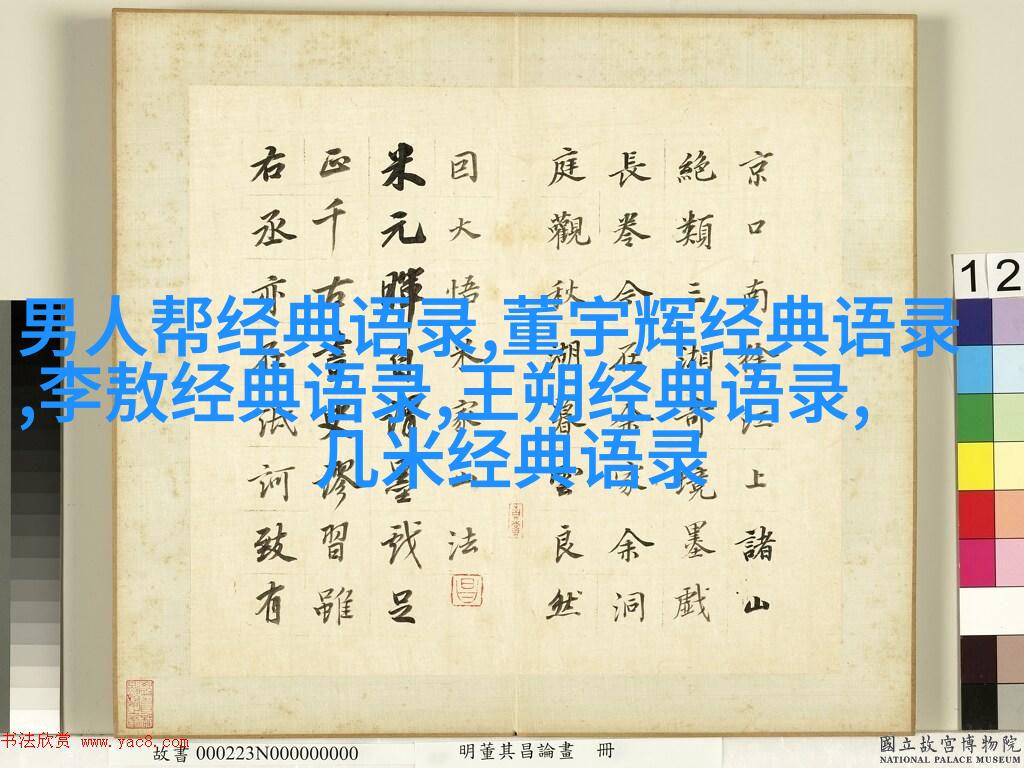 男人帮经典语录,董宇辉经典语录
,李敖经典语录,王朔经典语录,
几米经典语录
京口南徐江上諸山
絕類三湘奇境墨戲
長卷今在余家余洞
庭觀秋湖暮雲良然
因大悟米家山法
米元暉自謂墨戲足
正千古畫史謬習雖
右丞亦在詆訶致有
12
书法欣赏 www.yac8.com
故書 000223N000000000
明董其昌論畫 冊
國立故宮博物院
NATIONAL PALACE MUSEUM